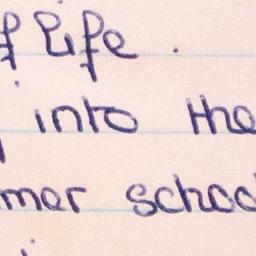 f life.
into the
mer schoo